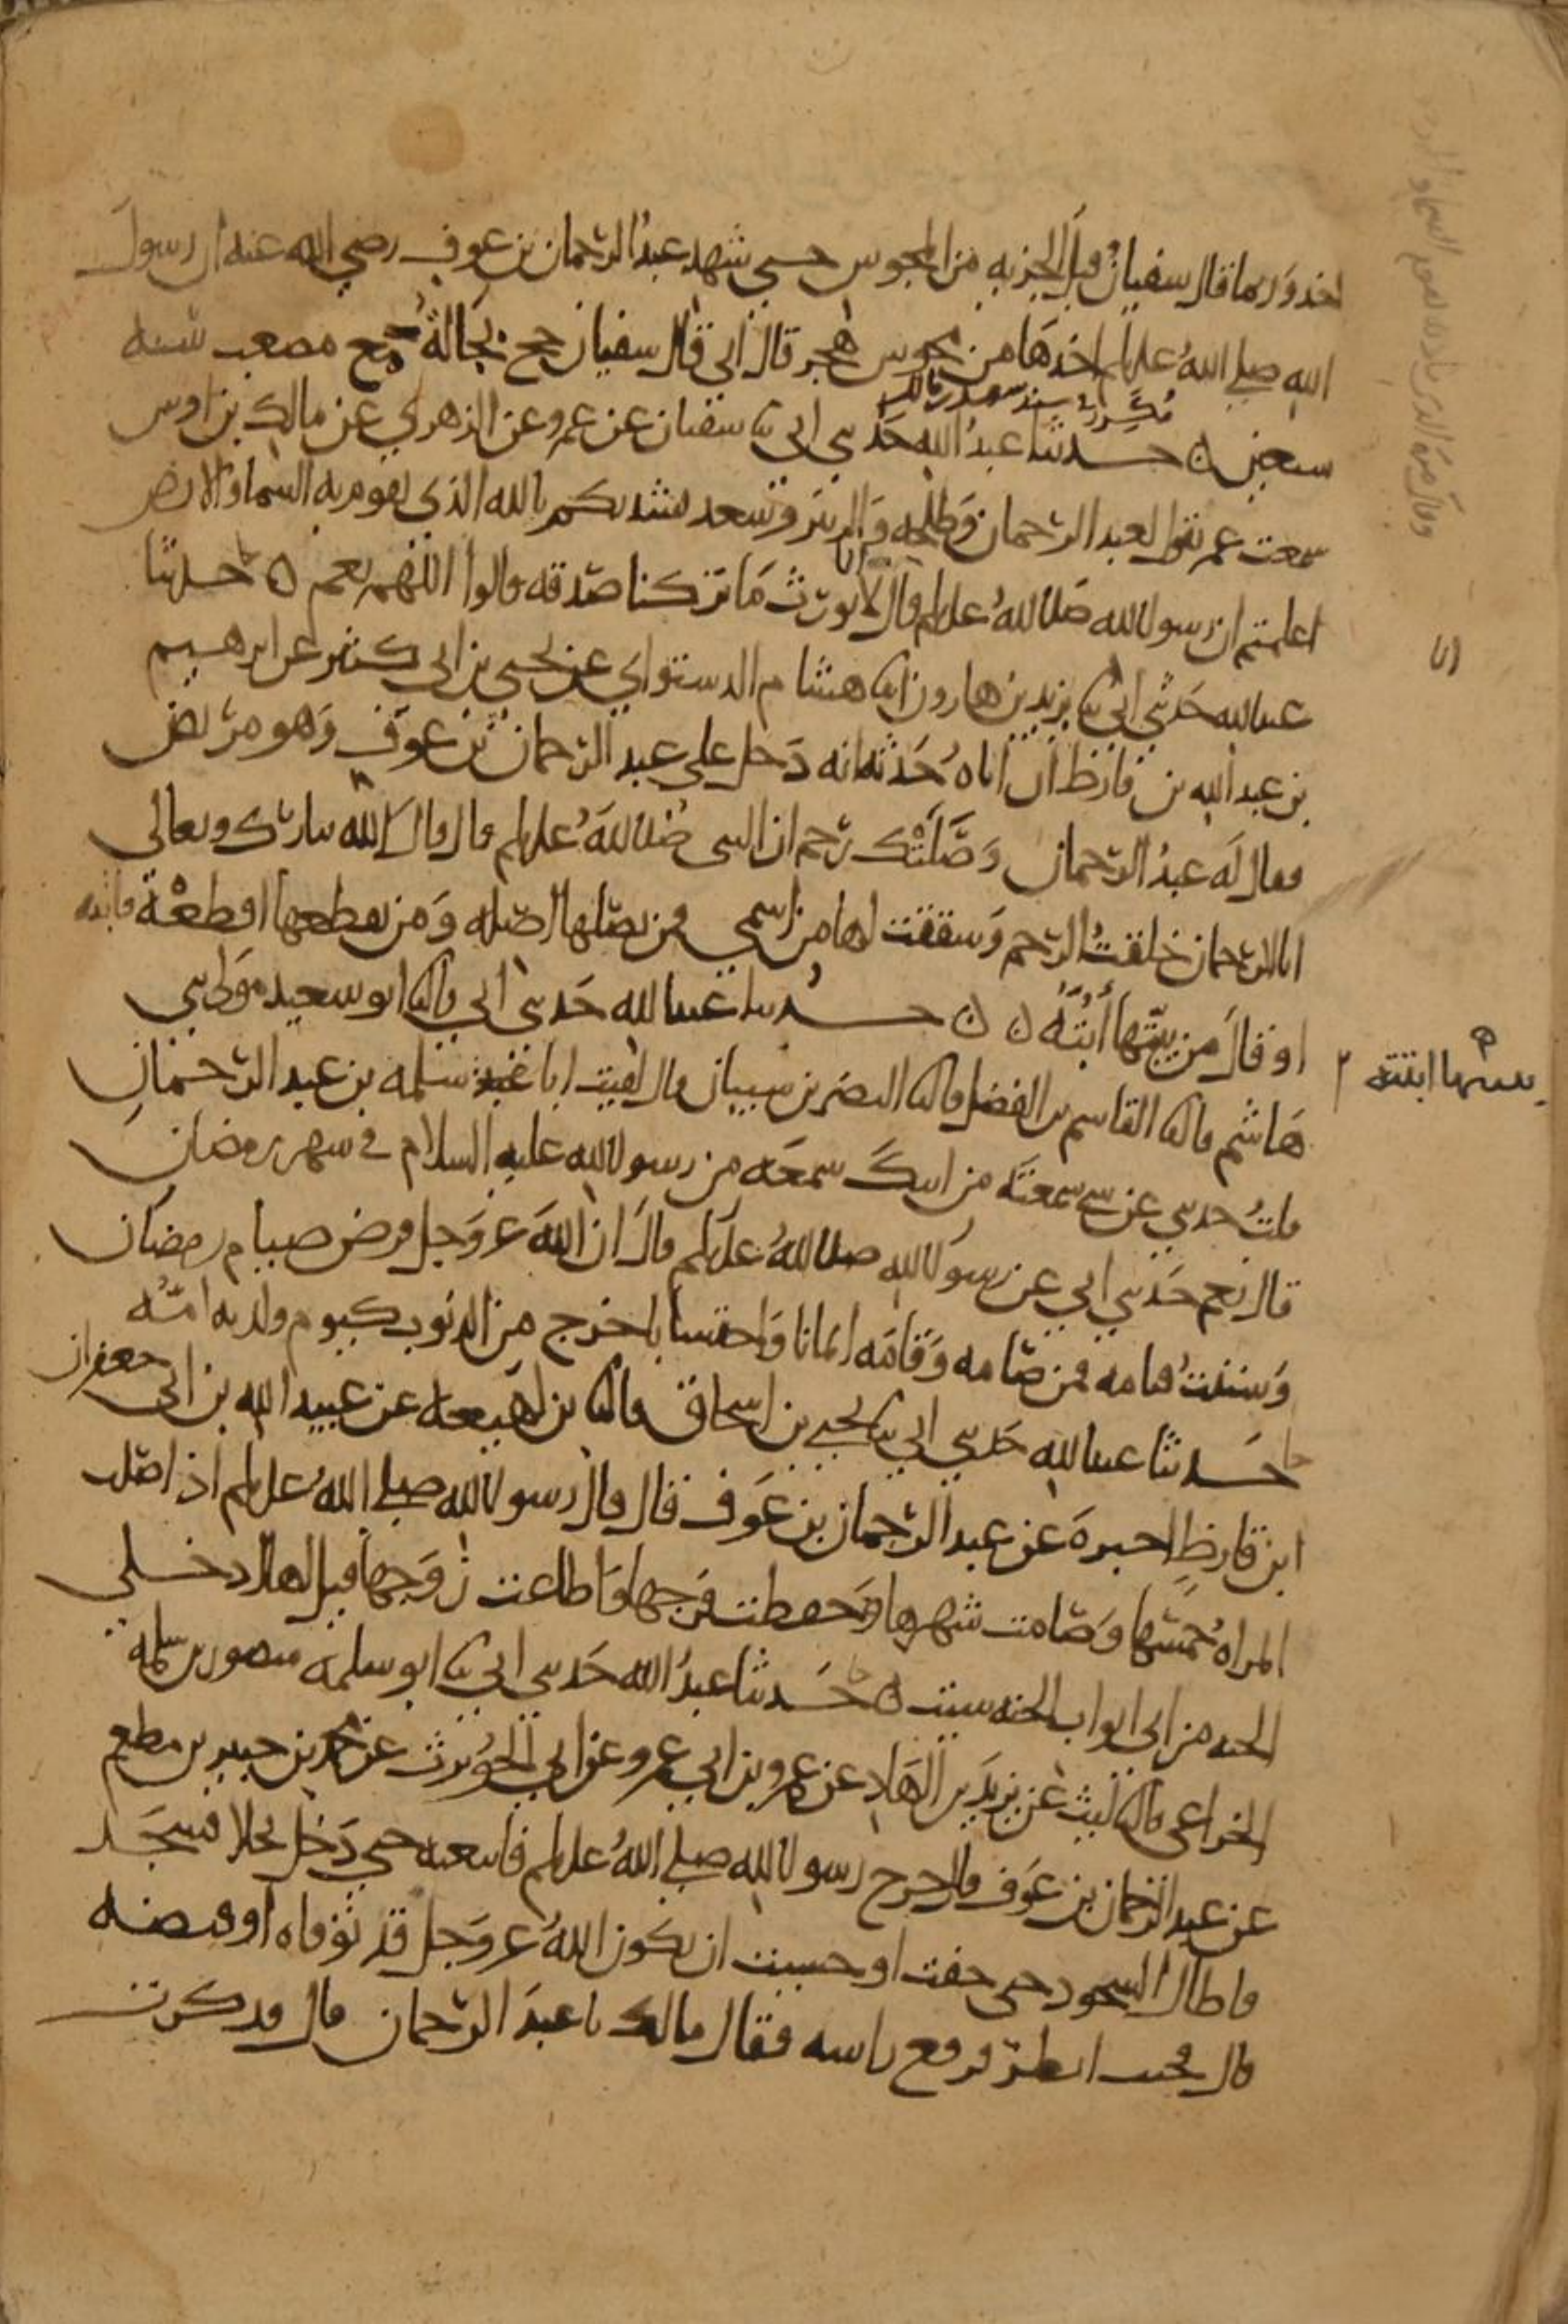 اخذ وربما قال سفيان قبل الجزيه من المجوس حتى شهد عبد الرحمان بن عوف رضي الله عنه ان رسول
الله صلى الله عليه وسلم اخذها من مجوس هجر قال ابي قال سفيان حج بجالة مع مصعب سنه
مكرر في مسند سعد بن مالك
سبعين ه حدثنا عبد الله حدثني ابي ثنا سفيان عن عمرو عن الزهري عن مالك بن اوس
سمعت عمر يقول لعبد الرحمان وطلحه والزبير وسعد نشدتكم بالله الذي تقوم به السما والارض
اعلمتم ان رسول الله صلى الله عليه وسلم قال انا لا نورث ما تركنا صدقه قالوا اللهم نعم ه حدثنا
عبد الله حدثني ابي ثنا يزيد بن هارون انا هشام الدستوائي عن يحيى بن ابي كثير عن ابرهيم
بن عبد الله بن قارظ ان اباه حدثه انه دخل على عبد الرحمان بن عوف وهو مريض
فقال له عبد الرحمان وصلتك رحم ان النبي صلى الله عليه وسلم قال قال الله تبارك وتعالى
انا الرحمان خلقت الرحم وشققت لها من اسمي فمن يصلها اصله ومن يقطعها اقطعه فابته
او قال من يبتها ابته ه ه حدثنا عبد الله حدثني ابي قال ثنا ابو سعيد مولى بني
هاشم قال ثنا القاسم بن الفضل قال ثنا النضر بن شيبان قال لقيت ابا سلمه بن عبد الرحمان
قلت حدثني عن شي سمعته من ابيك سمعه من رسول الله عليه السلام في شهر رمضان
قال نعم حدثني ابي عن رسول الله صلى الله عليه وسلم قال ان الله عز وجل فرض صيام رمضان
وسننت قيامه فمن صامه وقامه ايمانا واحتسابا خرج من الذنوب كيوم ولدته امه
حدثنا عبد الله حدثني ابي ثنا يحيى بن اسحاق قال ثنا بن لهيعه عن عبيد الله بن ابي جعفر ان
ابن قارظ اخبره عن عبد الرحمان بن عوف قال قال رسول الله صلى الله عليه وسلم اذا صلت
المراه خمسها وصامت شهرها وحفظت فرجها واطاعت زوجها قيل لها ادخلي
الجنه من اي ابواب الجنه شيت ه حدثنا عبد الله حدثني ابي ثنا ابو سلمه منصور بن سلمه
الخزاعي قال ثنا ليث عن يزيد بن الهاد عن عمرو بن ابي عمرو عن ابي الحويرث عن محمد بن جبير بن مطعم
عن عبد الرحمان بن عوف قال خرج رسول الله صلى الله عليه وسلم فاتبعته حتى دخل نخلا فسجد
فاطال السجود حتى خفت او خشيت ان يكون الله عز وجل قد توفاه او قبضه
قال فجيت انظر فرفع راسه فقال مالك يا عبد الرحمان قال فذكرت
وقال مره الذي باذنه تقوم السما والارض
انا
يبتها ابته